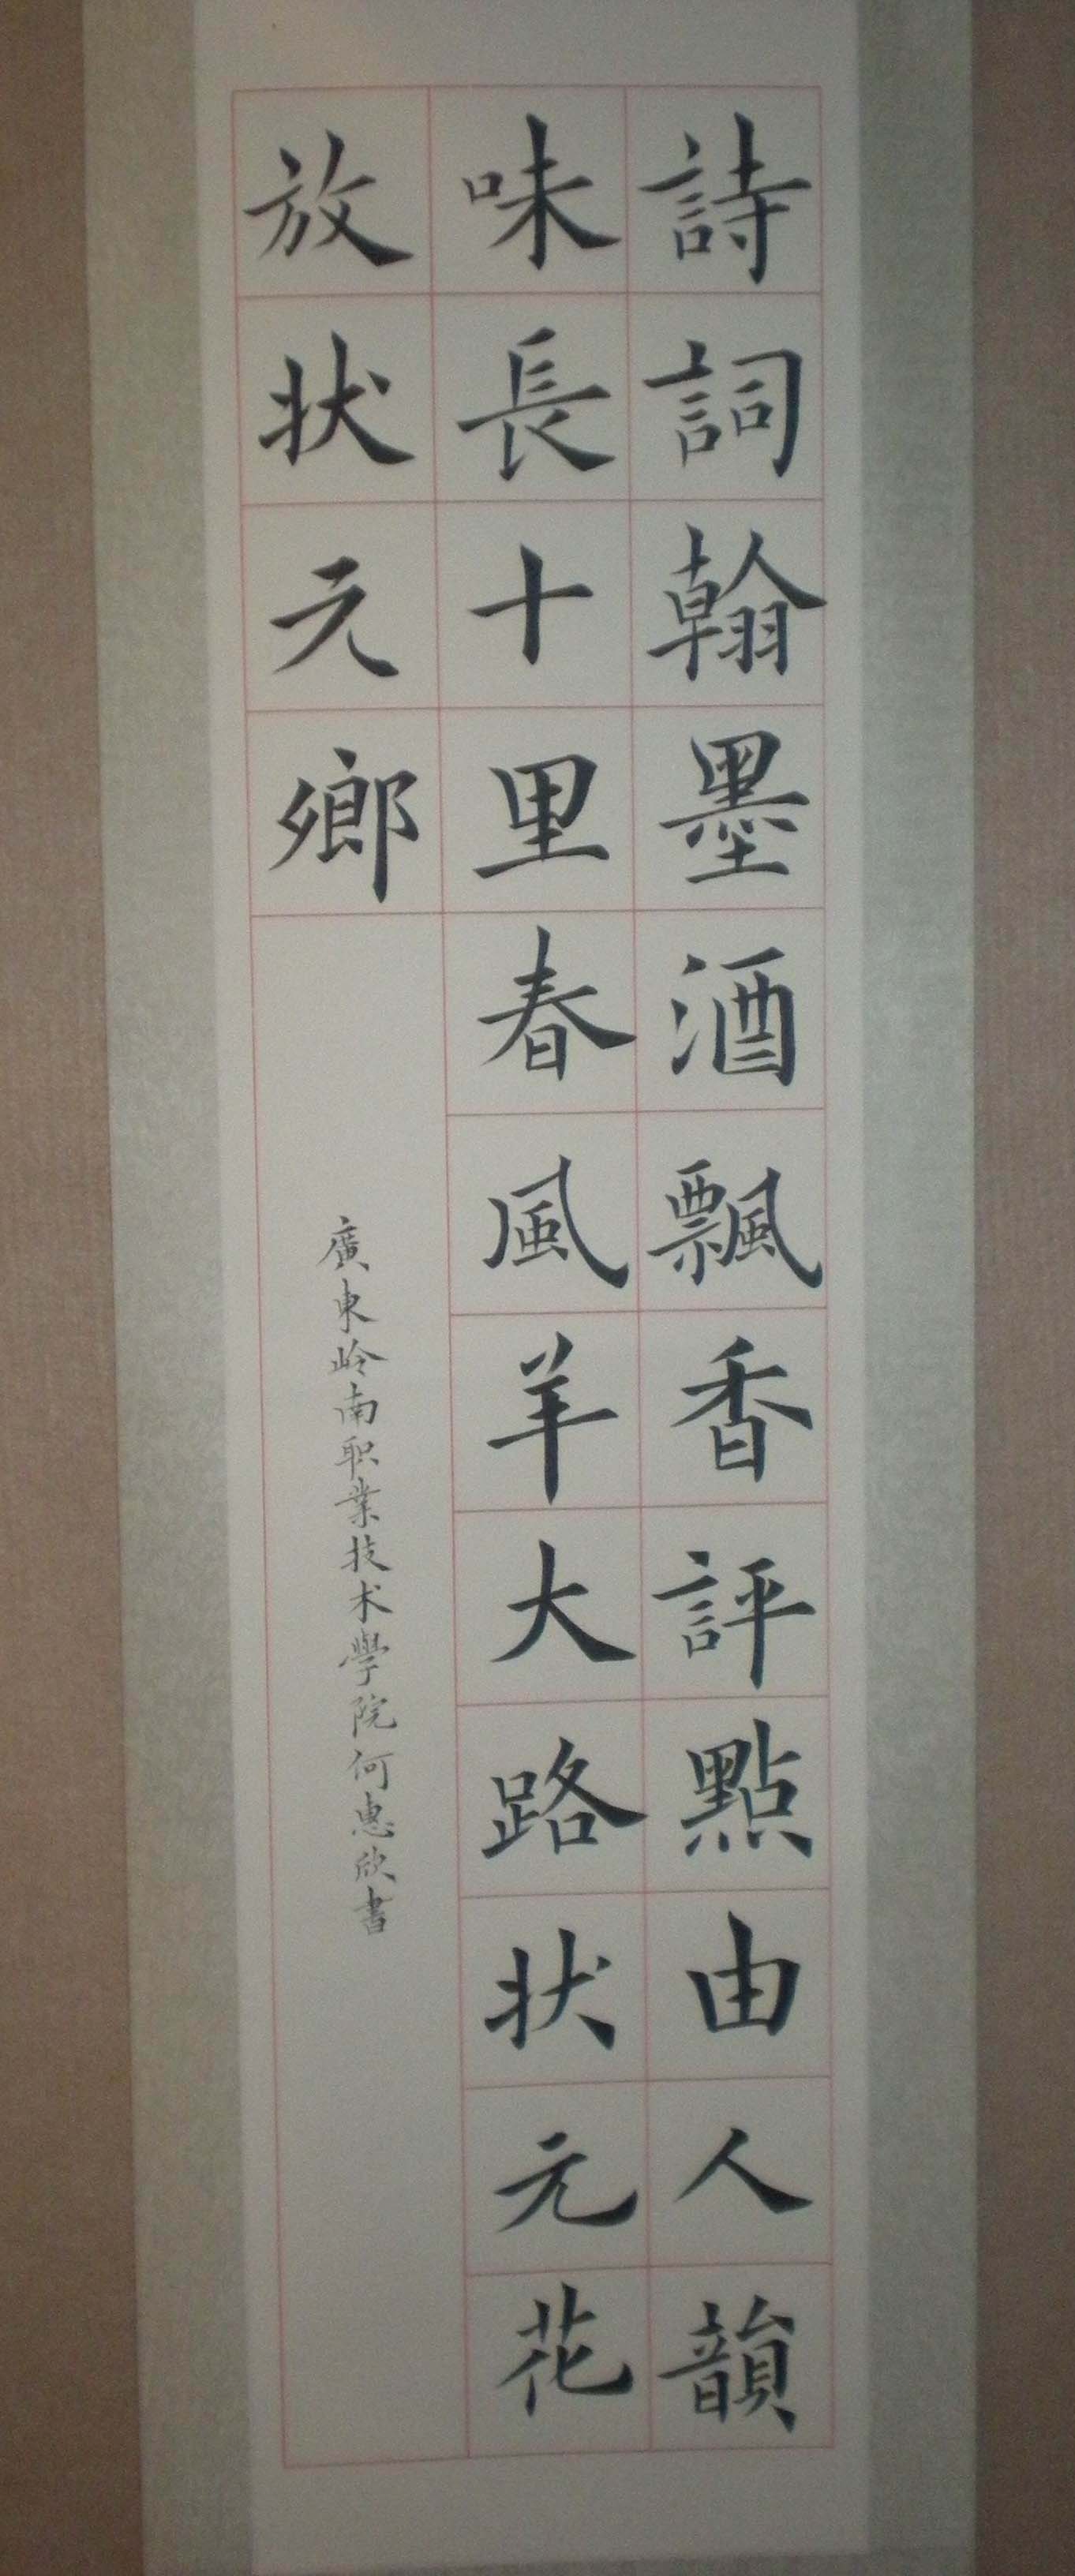 詩詞翰墨酒飄香評點由人韻
味長十里春風羊大路状元花
放状元鄉
廣東岭南职業技术學院何惠欣書